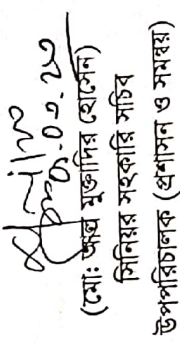 ০৩.২০
(মোঃ আল মুক্তাদির হোসেন)
সিনিয়র সহকারি সচিব
উপপরিচালক (প্রশাসন ও সমন্বয়)